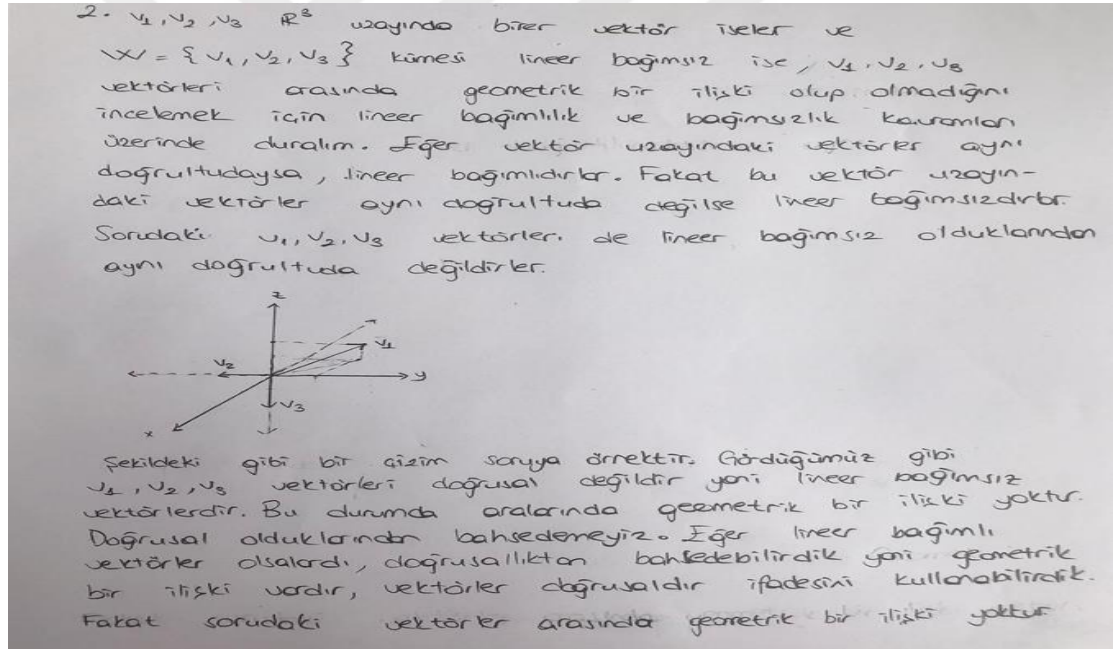 2. v1, v2, v3 R³ uzayında birer vektör iseler ve
W = { v1, v2, v3 } kümesi lineer bağımsız ise, v1, v2, v3
vektörleri arasında geometrik bir ilişki olup olmadığını
incelemek için lineer bağımlılık ve bağımsızlık kavramları
üzerinde duralım. Eğer vektör uzayındaki vektörler aynı
doğrultudaysa, lineer bağımlıdırlar. Fakat bu vektör uzayın-
daki vektörler aynı doğrultuda değilse lineer bağımsızdırlar.
Sorudaki v1, v2, v3 vektörleri de lineer bağımsız olduklarından
aynı doğrultuda değildirler.
z
v1
v2
y
v3
x
Şekildeki gibi bir çizim soruya örnektir. Gördüğümüz gibi
v1, v2, v3 vektörleri doğrusal değildir yani lineer bağımsız
vektörlerdir. Bu durumda aralarında geometrik bir ilişki yoktur.
Doğrusal olduklarından bahsedemeyiz. Eğer lineer bağımlı
vektörler olsalardı, doğrusallıktan bahsedebilirdik yani geometrik
bir ilişki vardır, vektörler doğrusaldır ifadesini kullanabilirdik.
Fakat sorudaki vektörler arasında geometrik bir ilişki yoktur